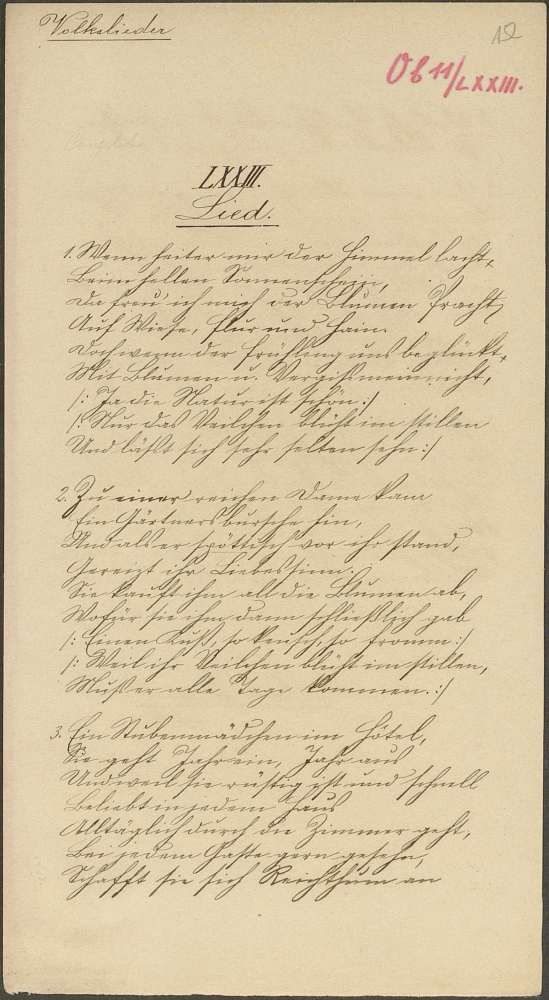 Volkslieder
12
Ob 11/LXXIII.
LXXIII.
Lied.
1. Wenn heiter mir der Himmel lacht,
Beim hellen Sonnenschein,
Da freu' ich mich der Blumen Pracht,
Auf Wiese, Flur und Hain.
Doch wenn der Frühling uns beglückt,
Mit Blumen u. Vergißmeinnicht,
/: Ja die Natur ist schön :/
/: Nur das Veilchen blüht im stillen
Und läßt sich sehr selten sehn :/
2. Zu einer reichen Dame kam
Ein Gärtnersbursche hin,
Und als er spöttisch vor ihr stand,
Gereizt ihr Liebessinn.
Sie kauft ihm all die Blumen ab,
Wofür sie ihm dann schließlich gab
/: Einen Kuß, so keusch, so fromm :/
/: Weil ihr Veilchen blüht im stillen,
Muß er alle Tage kommen. :/
3. Ein Stubenmädchen im Hôtel,
Sie geht Jahr ein, Jahr aus
Und weil sie rüstig ist und schnell
Beliebt in jedem Haus
Alltäglich durch die Zimmer geht,
Bei jedem Gaste gern gesehn,
Schafft sie sich Reichthum an